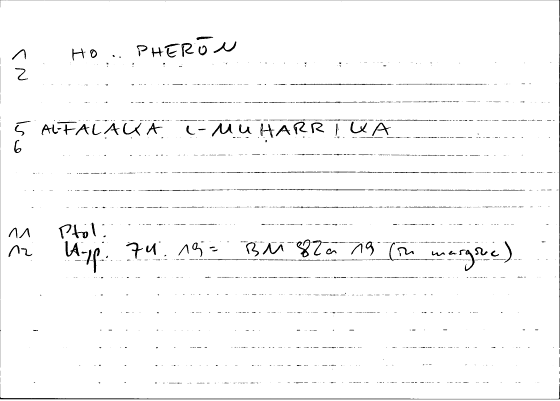 1 HO.. PHERŌN
2
5 ALFALAKA L-MUHARRIKA
6
11 Ptol.
12 Hyp. 74. 19 = BM 82a 19 (in margine)